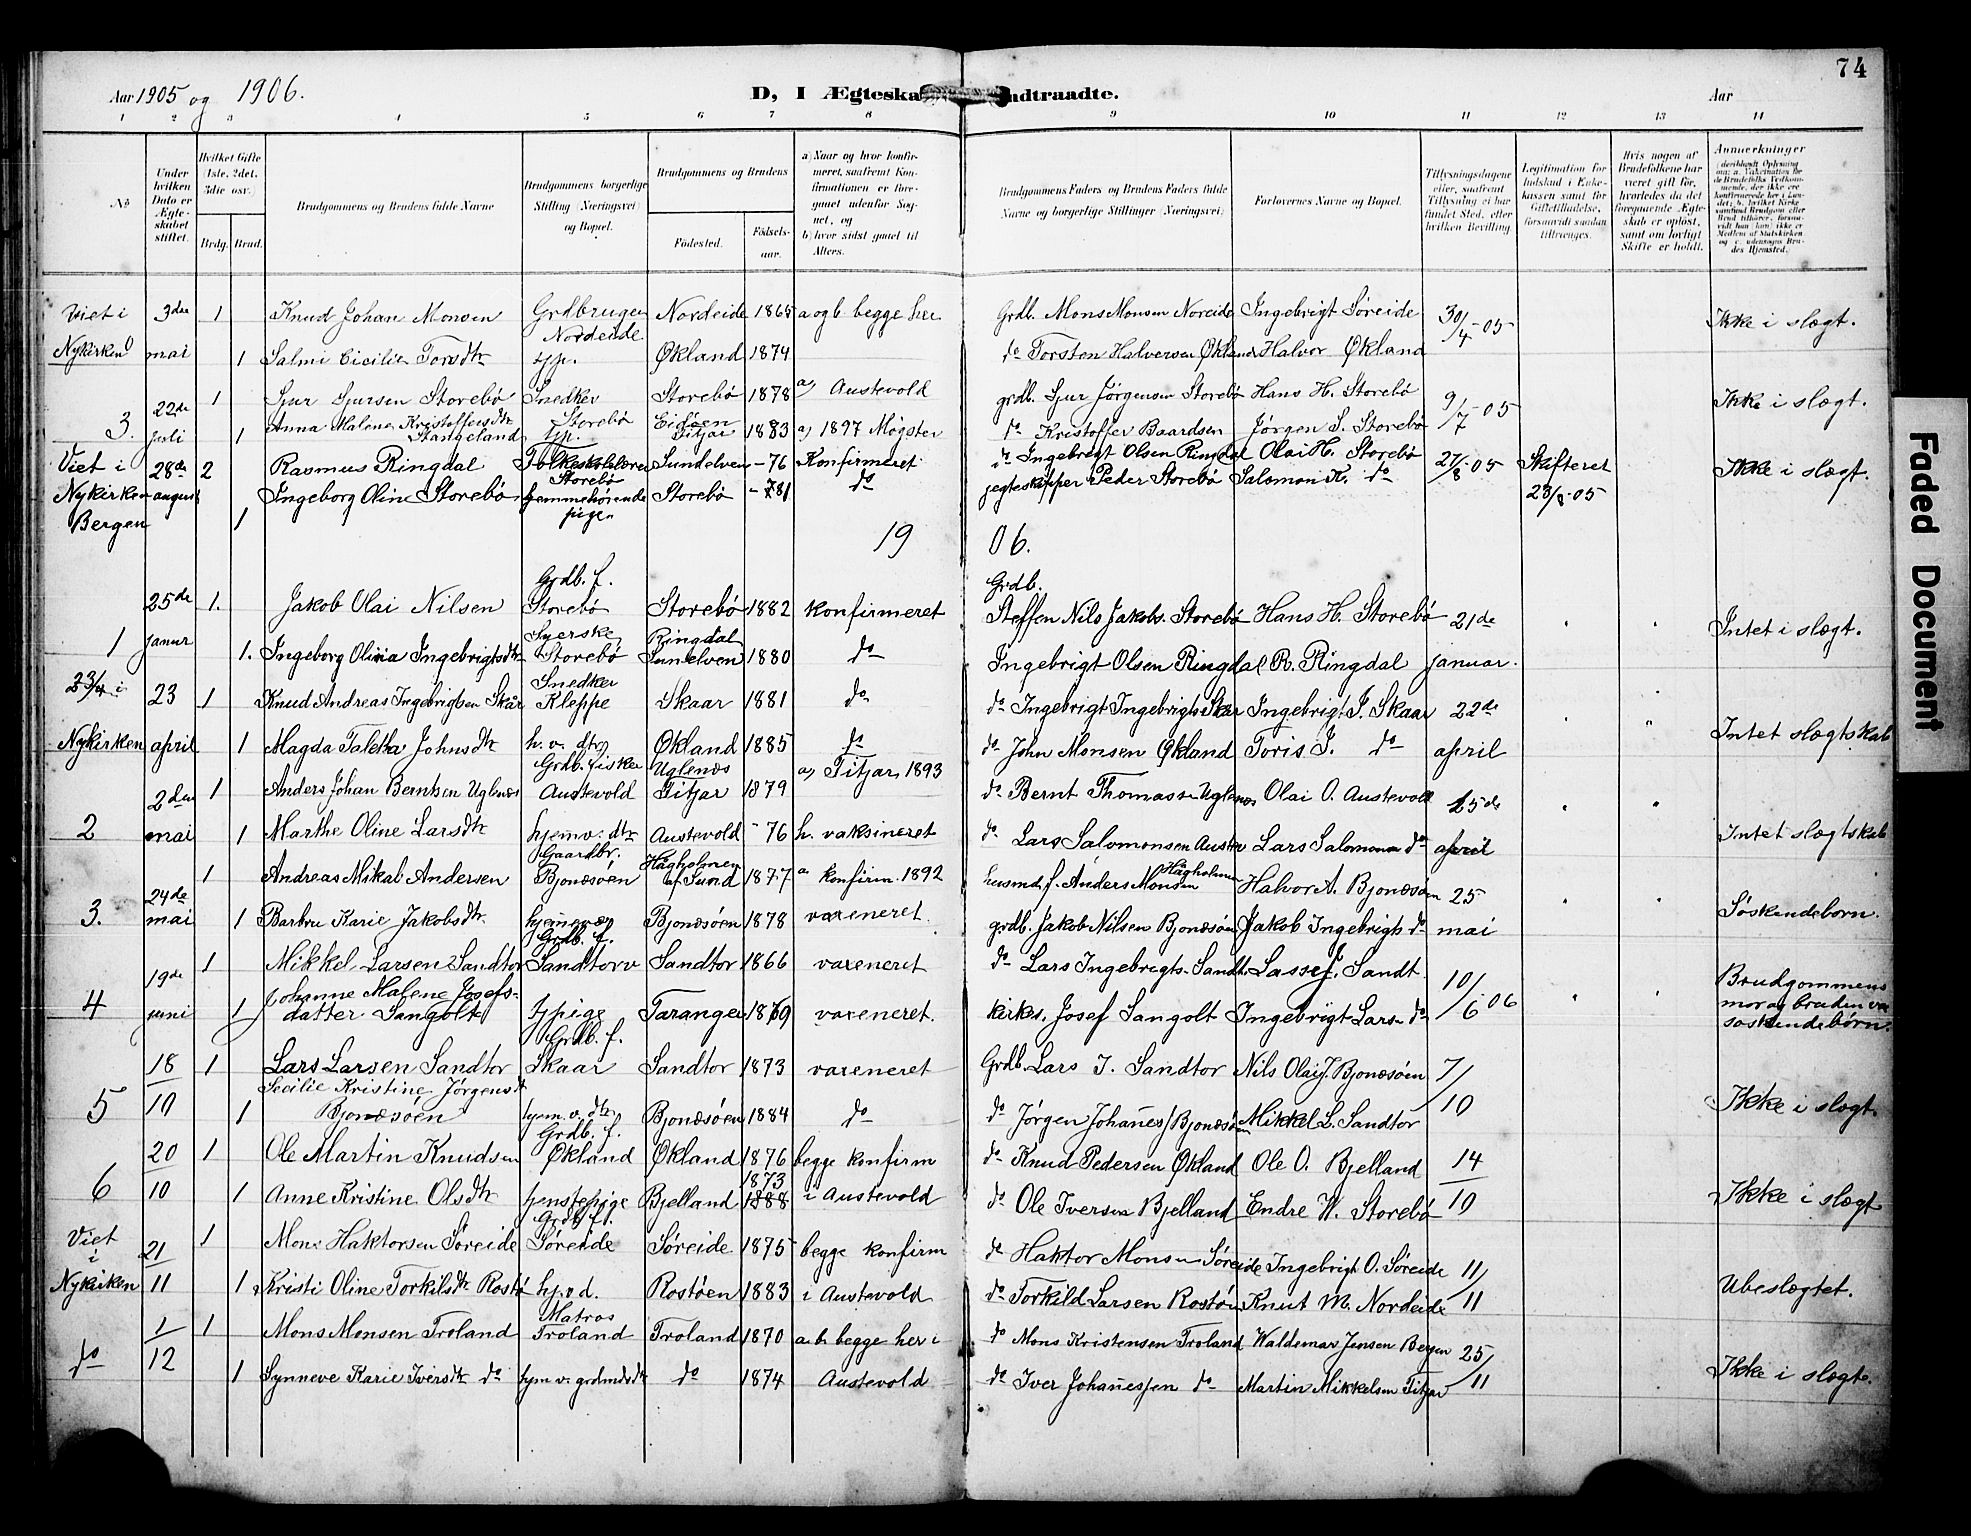 74
Aar 1905 og 1906.
D, I Ægteska ndtraadte.
Aar
1 2 3 4 5 6 7 8 9 10 11 12 13 14
No
Under hvilken Dato er Ægteskabet stiftet.
Hvilket Gifte (1ste, 2det, 3die osv.)
Brdg. Brud.
Brudgommens og Brudens fulde Navne
Brudgommens borgerlige Stilling (Næringsvei) og Bopæl.
Brudgommens og Brudens
Födested. Födselsaar.
a) Naar og hvor konfirmeret, saafremt Konfirmationen er foregaaet udenfor Sognet, og
b) hvor sidst gaaet til Alters.
Brudgommens Faders og Brudens Faders fulde Navne og borgerlige Stillinger (Næringsvei)
Forlovernes Navne og Bopæl.
Tillysningsdagene eller, saafremt Tillysning ei har fundet Sted, efter hvilken Bevilling
Legitimation for Indskud i Enkekassen samt for Giftetilladelse, forsaavidt saadan tiltrænges.
Hvis nogen af Brudefolkene har været gift för, hvorledes da det foregaaende Ægteskab er oplöst, samt om lovligt Skifte er holdt.
Anmerkninger
Viet i 3die 1 Knud Johan Monsen Grdbruger Nordeide Nordeide 1865 a og b begge her Grdb. Mons Monsen Noreide Ingebrigt Søreide 30/4-05 Ikke i slægt.
Nykirken mai 1 Salmi Cicilie Torsdtr tjp. Økland 1874 do Torsten Halversen Økland Halvor Økland
22de 1 Sjur Sjursen Storebø Snedker Storebø Storebø 1878 a) Austevold grdb. Sjur Jørgensen Storebø Hans H. Storebø 9/7-05 Ikke i slægt.
3. juli 1 Anna Malene Kristoffersdtr Stangeland tjp. Eidøen Fitjar 1883 a) 1897 Møgster do Kristoffer Baardsen Jørgen S. Storebø
Viet i 28de 2 Rasmus Ringdal Folkeskolelærer Storebø Sundelven -76 Konfirmeret do Ingebregt Olsen Ringdal Olai H. Storebø 27/8-05 Skifteret Ikke i slægt.
Nykirken august Ingeborg Oline Storebø hjemmehørende pige Storebø -81 do jegteskipper Peder Storebø Salomon K. do 23/8-05
Bergen 1
19 06.
25de 1. Jakob Olai Nilsen Grdb. f. Storebø Storebø 1882 konfirmeret Grdb. Steffen Nils Jakobs. Storebø Hans H. Storebø 21de Intet i slægt.
1 janur 1. Ingeborg Olivia Ingebrigtsdtr Syerske Storebø Ringdal Sundelven 1880 do Ingebrigt Olsen Ringdal R. Ringdal januar.
23/4 i 23 1 Knud Andreas Ingebrigtsen Skår Snedker Kleppe Skaar 1881 do do Ingebrigt Ingebrigts. Skår Ingebrigt J. Skaar 22de
Nykirken april 1 Magda Taletha Johnsdtr h. v. dtr Økland 1885 do do John Monsen Økland Toris J. do april Intet slægtskab
2den 1 Anders Johan Berntsen Uglenæs Grdb. fisker Austevold Uglenæs Fitjar 1879 a) Fitjar, 1893 do Bernt Thomass. Uglenæs Olai O. Austevold 15de
2 mai 1 Marthe Oline Larsdtr hjemv. dtr Austevold -76 h. vaksineret do Lars Salomonsen Austev Lars Salomonsen do april Intet slægtskab
1 Andreas Mikal Andersen Gaardbr. Bjonæsøen Hågholmen af Sund 1877 a konfirm. 1892 husmd. f. Anders Monsen Hågholmen Halvor A. Bjonæsøen 25
24de
3. mai 1 Barbru Karie Jakobsdtr. Bjonæsøen 1878 vaxeneret. grdb. Jakob Nilsen Bjonæsøen Jakob Ingebrigts do mai Søskendebørn.
19de 1 Mikkel Larsen Sandtor Grdb. f. Sandtorv Sandtor 1866 vaxeneret do Lars Ingebregts. Sandt. Lasse J. Sandt 10/6-06 Brudgommens
4 juni 1 Johanne Malene Josefsdatter Sangolt tjpige Taranger 1869 vaxeneret. kirkes. Josef Sangolt Ingebrigt Lars. do mor og bruden var søskendebørn.
18 1 Lars Larsen Sandtor Grdb. f. Skaar Sandtor 1873 vaxeneret Grdb. Lars I. Sandtor Nils Olai J. Bjonæsøen 7/
5 10 1 Secilie Kristine Jørgensdt Bjonæsøen hjem. v. dtr Bjonæsøen 1884 do do Jørgen Johannes. Bjonæsøen Mikkel L. Sandtor 10 Ikke i slægt.
20 1 Ole Martin Knudsen Grdb. f. Økland Økland 1876 begge konfirm do Knud Pedersen Økland Ole O. Bjelland 14
6 10 1 Anne Kristine Olsdtr tjenstepige Bjelland 1873 1888 i Austevold do Ole Iversen Bjelland Endre W. Storebø 10 Ikke i slægt
Viet i 21 1 Mons Haktorsen Søreide Grdb. f. Søreide Søreide 1875 begge konfirm do Haktor Monsen Søreide Ingebrigt O. Søreide 11/
Nykirken 11 1 Kristi Oline Torkilsdtr Rostø hj. v. d. Rostøen 1883 i Austevold do Torkild Larsen Rostøen Knut M. Nordeide 11 Ubeslægtet.
1 1 Mons Monsen Troland Matros Troland Troland 1870 a. b. begge her i do Mons Kristensen Troland Waldemar Jensen Bergen 25/
do 12 1 Synneve Karie Iversdtr do hjem v. grdmdsdtr do 1874 Austevold do Iver Johannessen do Martin Mikkelsen Fitjar 11 Ikke i slægt.
Faded Document